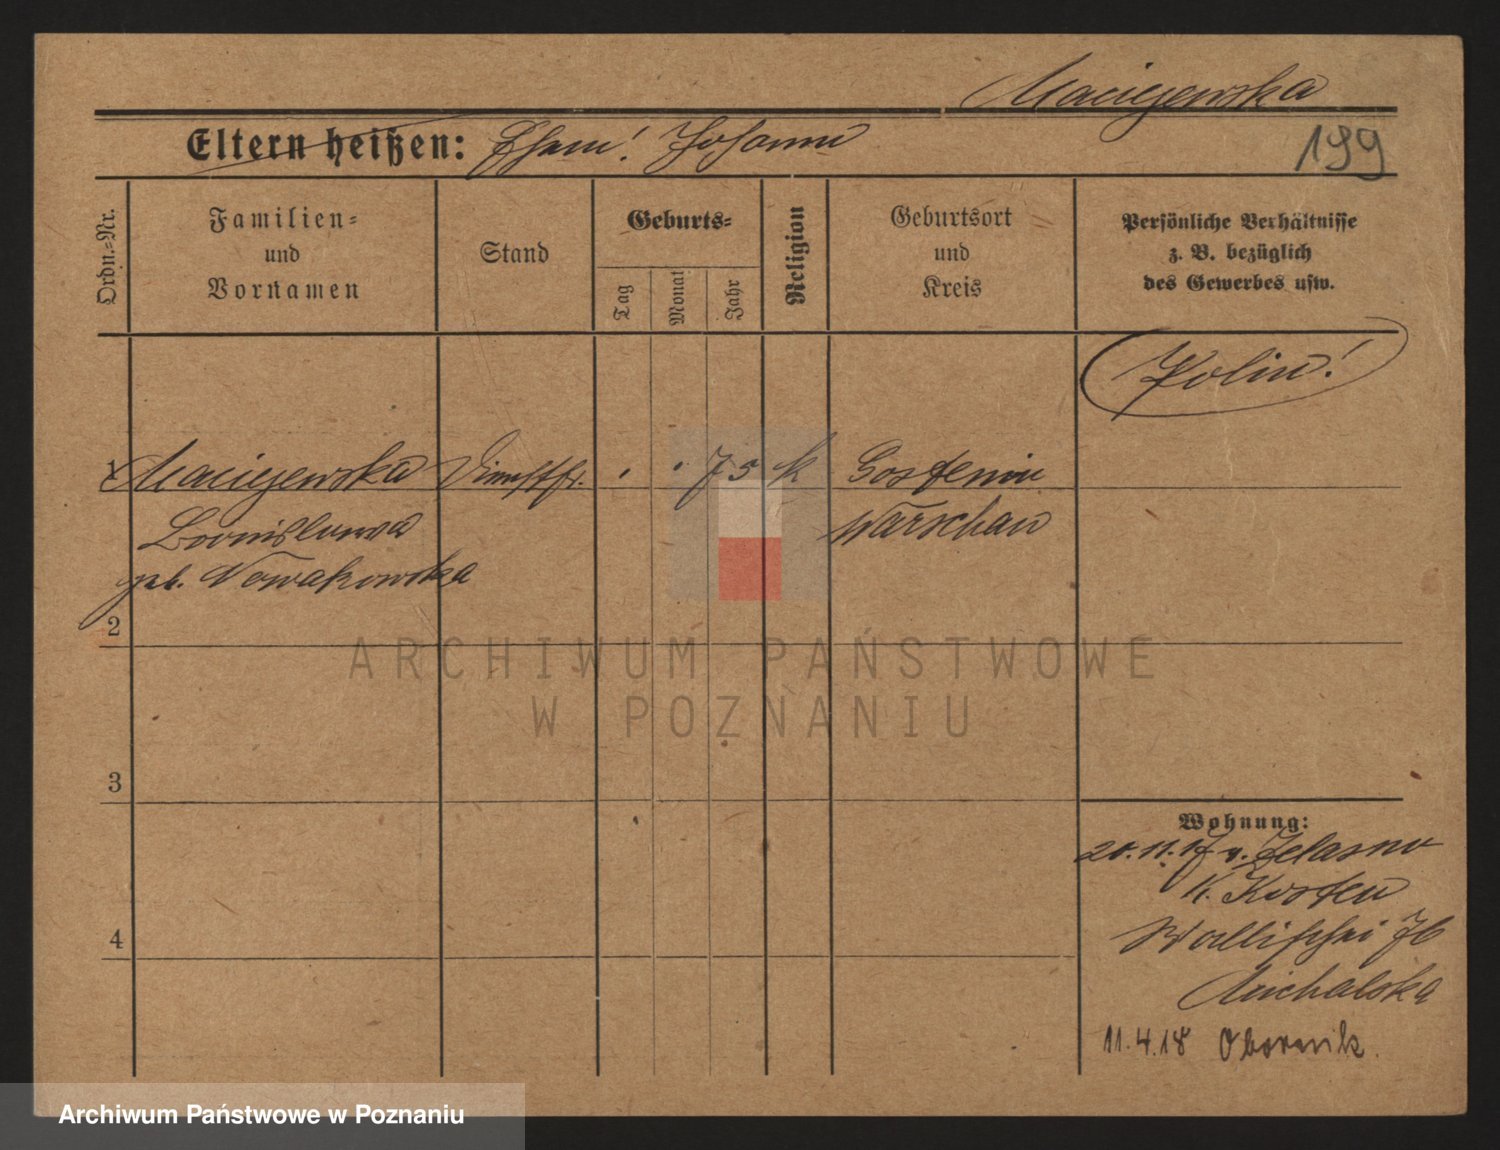 Maciejewska
Eltern heißen: Ehem! Johann
199
Ordn.=Nr.
Familien=
und
Vornamen
Stand
Geburts=
Tag
Monat
Jahr
Religion
Geburtsort
und
Kreis
Persönliche Verhältnisse
z. B. bezüglich
des Gewerbes usw.
Polin!
1 Maciejewska Dienstfr. 75 k Gostenin
Bronislawa Warschau
geb. Nowakowska
2
3
4
Wohnung:
20.11.17 v. Zelasno
K. Kosten
Wallischei 76
Michalska
11.4.18 Obornik.
ARCHIWUM PAŃSTWOWE
W POZNANIU
Archiwum Państwowe w Poznaniu